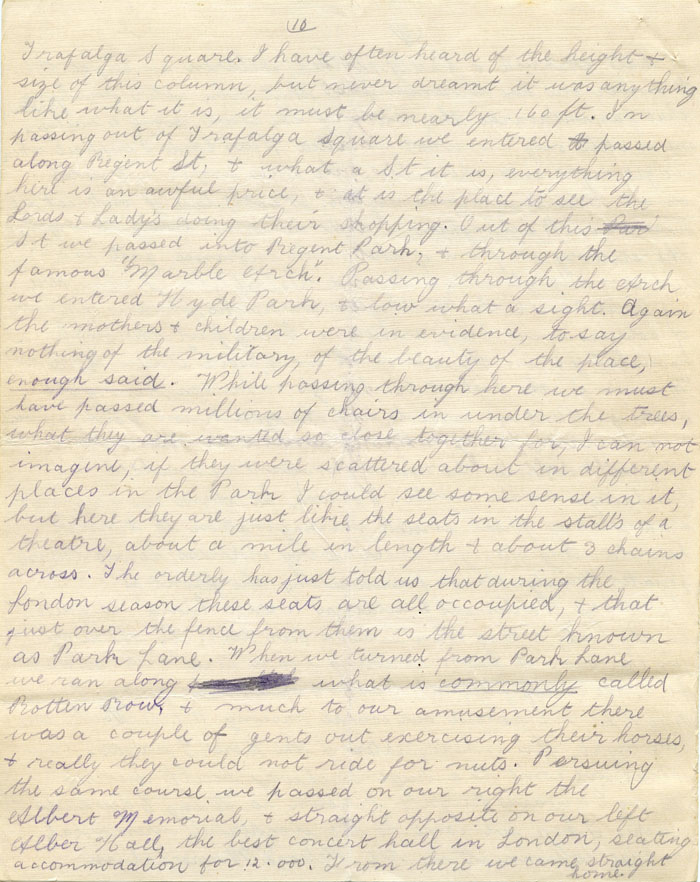 10
Trafalga Square. I have often heard of the height +
size of this column, but never dreamt it was anything
like what it is, it must be nearly 160 ft. In
passing out of Trafalga Square we entered passed
along Regent St, + what a St it is, everything
here is an awful price, + it is the place to see the
Lords + Lady's doing their shopping. Out of this
St we passed into Regent Park, + through the
famous "Marble Arch". Passing through the Arch
we entered Hyde Park, + low what a sight. Again
the mothers + children were in evidence, to say
nothing of the military, of the beauty of the place,
enough said. While passing through here we must
have passed millions of chairs in under the trees,
what they are wanted so close together for, I can not
imagine, if they were scattered about in different
places in the Park I could see some sense in it,
but here they are just like the seats in the stalls of a
theatre, about a mile in length + about 3 chains
across. The orderly has just told us that during the
London season these seats are all occoupied, + that
just over the fence from them is the street known
as Park Lane. When we turned from Park Lane
we ran along what is commonly called
Rotten Row, + much to our amusement there
was a couple of gents out exercising their horses,
+ really they could not ride for nuts. Persuing
the same course we passed on our right the
Albert Memorial, + straight opposite on our left
Alber Hall, the best concert hall in London, seating
accommodation for 12.000. From there we came straight
home.